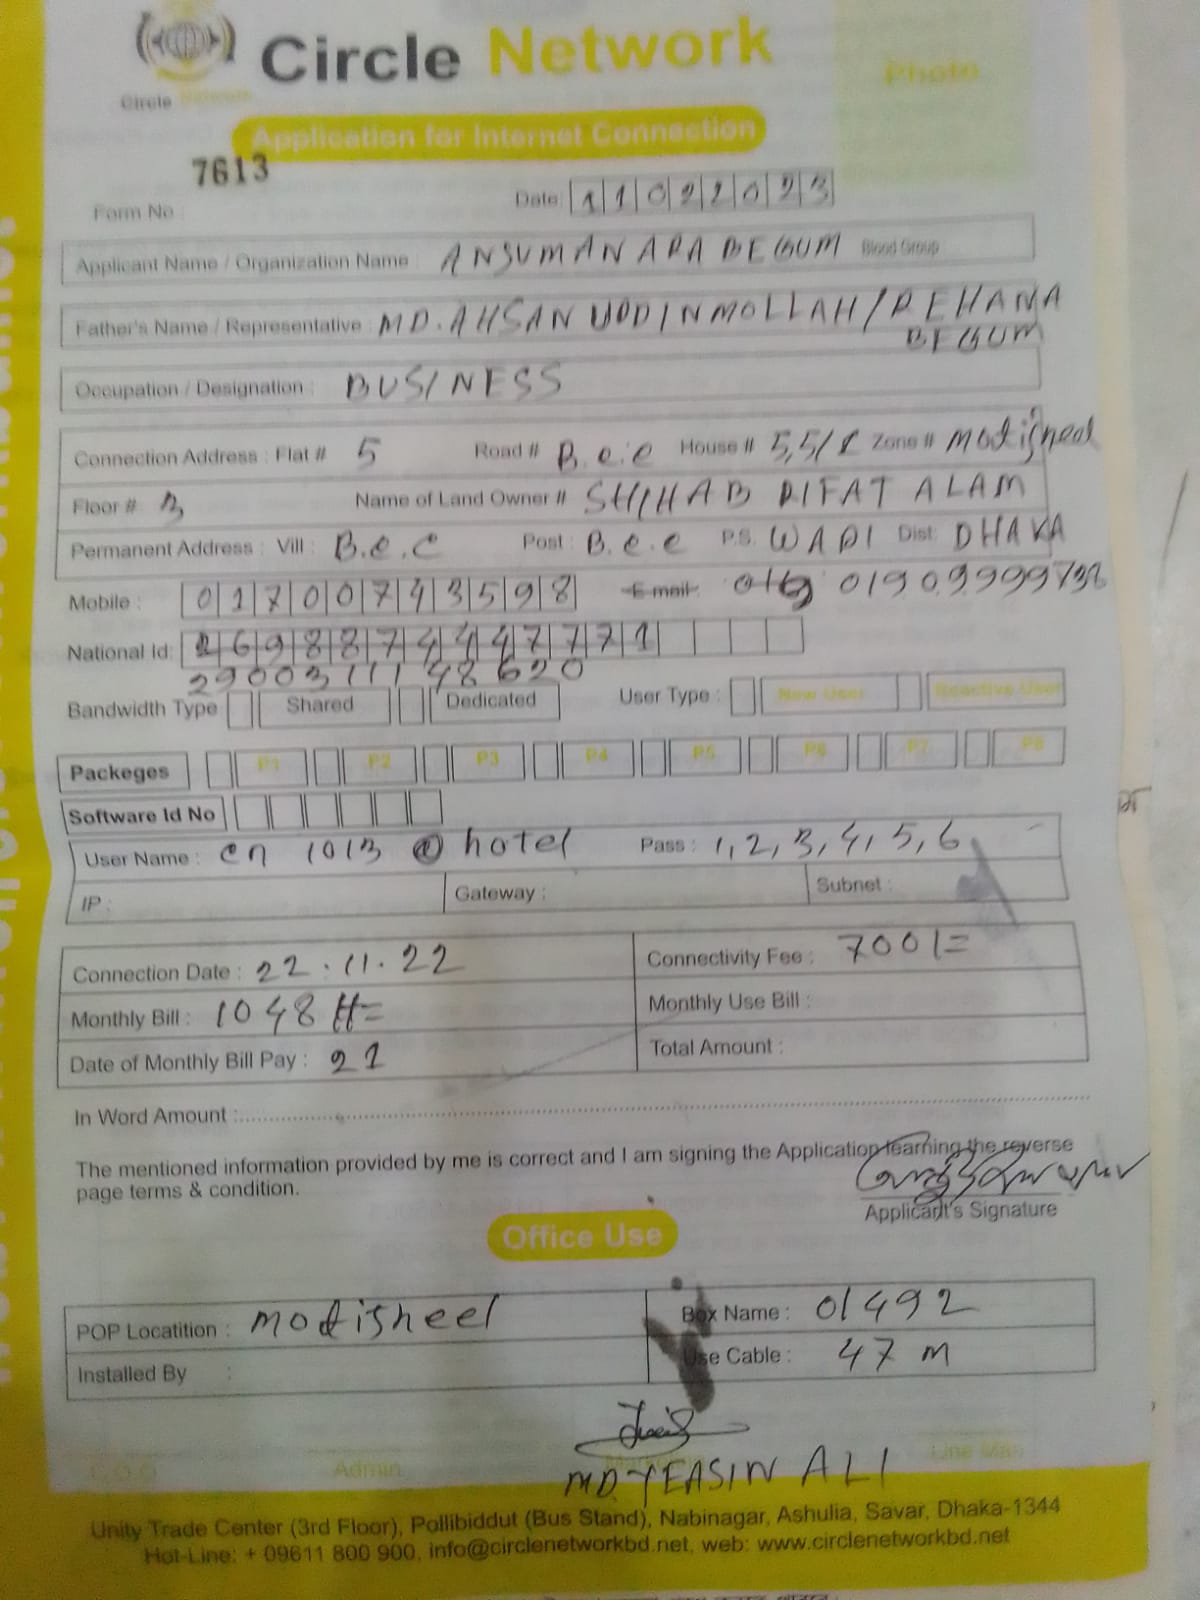 Circle Network
Circle Network
Photo
Application for Internet Connection
7613
Form No :
Date: 11022023
Applicant Name / Organization Name : ANJUMAN ARA BEGUM Blood Group
Father's Name / Representative : MD. AHSAN UDDIN MOLLAH / REHANA
BEGUM
Occupation / Designation : BUSINESS
Connection Address : Flat # 5 Road # B.C.C House # 5,5/1 Zone # Motijheel
Floor # 3 Name of Land Owner # SHIHAB RIFAT ALAM
Permanent Address : Vill : B.C.C Post : B.C.C P.S. WARI Dist: DHAKA
Mobile : 01700743598 E-mail: 01909999738
National Id: 2698874447771
29003111 48620
Bandwidth Type Shared Dedicated User Type : New User Reactive User
Packeges P1 P2 P3 P4 P5 P6 P7 P8
Software Id No
User Name : cn 1013 @ hotel Pass : 1,2,3,4,5,6
IP : Gateway : Subnet :
Connection Date : 22.11.22 Connectivity Fee : 700/=
Monthly Bill : 1048 Monthly Use Bill :
Date of Monthly Bill Pay : 21 Total Amount :
In Word Amount :
The mentioned information provided by me is correct and I am signing the Application learning the reverse
page terms & condition.
Applicant's Signature
Office Use
POP Locatition : Motijheel Box Name : 01492
Installed By : Use Cable : 47 M
C.O.O Admin Line Man
MD. YEASIN ALI
Unity Trade Center (3rd Floor), Pollibiddut (Bus Stand), Nabinagar, Ashulia, Savar, Dhaka-1344
Hot-Line: + 09611 800 900, info@circlenetworkbd.net, web: www.circlenetworkbd.net